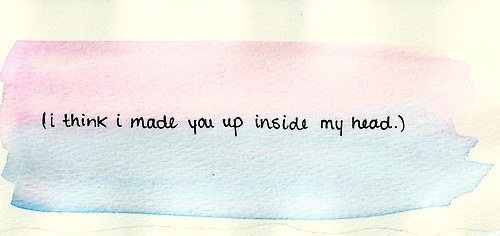 (i think i made you up inside my head.)